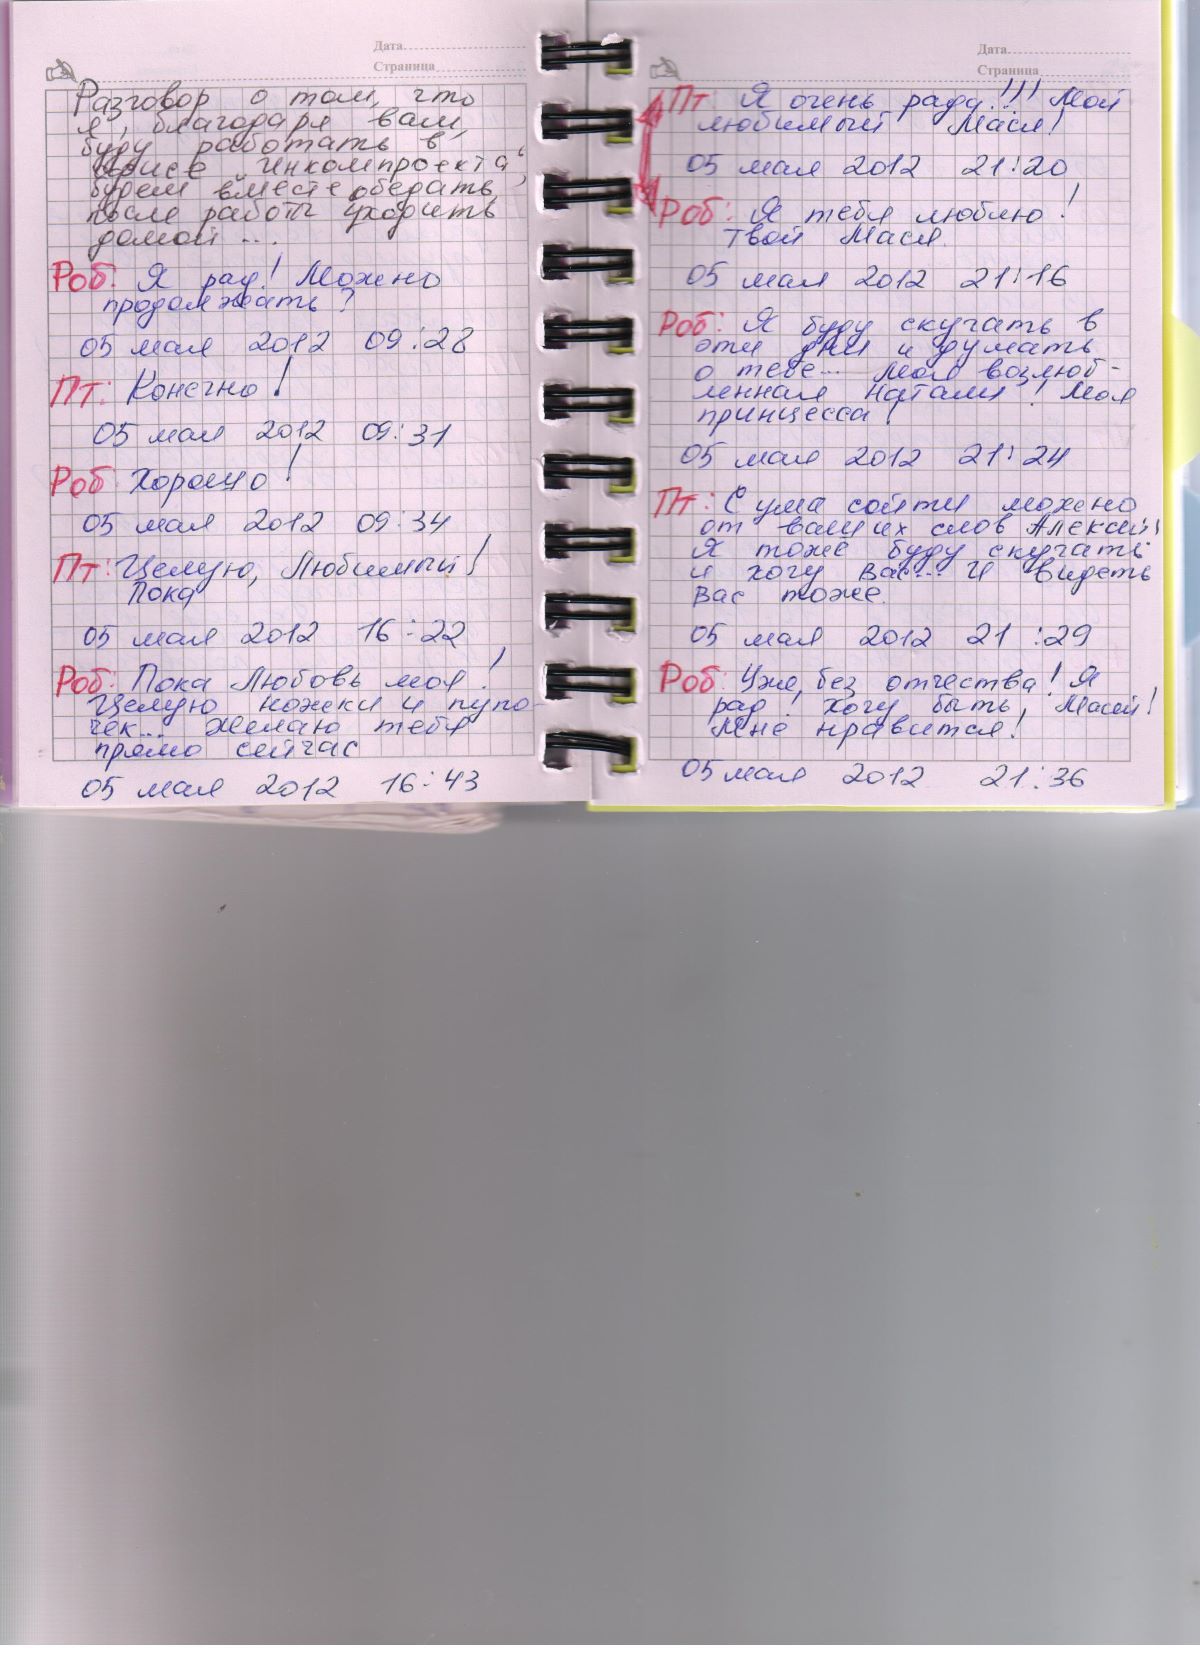 Дата
Страница
Разговор о том, что
я, благодаря вам,
буду работать в
офисе "Инкомпроекта",
будем вместе обедать,
после работы уходить
домой ...
Роб: Я рад! Можно
продолжать?
05 мая 2012 09:28
Пт: Конечно!
05 мая 2012 09:31
Роб: Хорошо!
05 мая 2012 09:34
Пт: Целую, Любимый!
Пока
05 мая 2012 16:22
Роб: Пока Любовь моя!
Целую ножки и пупо-
чек... Желаю тебя
прямо сейчас
05 мая 2012 16:43
Дата
Страница
Пт: Я очень рада!!! Мой
любимый Мася!
05 мая 2012 21:20
Роб: Я тебя люблю!
Твой Мася.
05 мая 2012 21:16
Роб: Я буду скучать в
эти дни и думать
о тебе... Моя возлюб-
ленная Натали! Моя
принцесса!
05 мая 2012 21:24
Пт: С ума сойти можно
от ваших слов Алексей!
Я тоже буду скучать
и хочу вас... И видеть
вас тоже.
05 мая 2012 21:29
Роб: Уже, без отчества! Я
рад! Хочу быть, Масей!
Мне нравится!
05 мая 2012 21:36